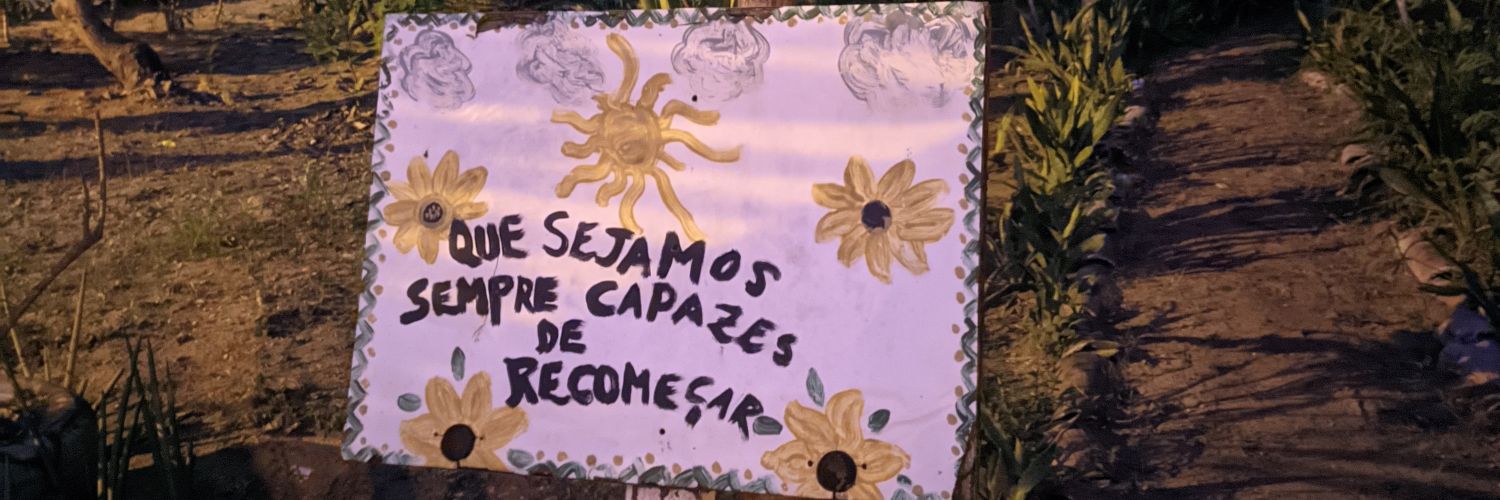 QUE SEJAMOS
SEMPRE CAPAZES
DE
RECOMEÇAR